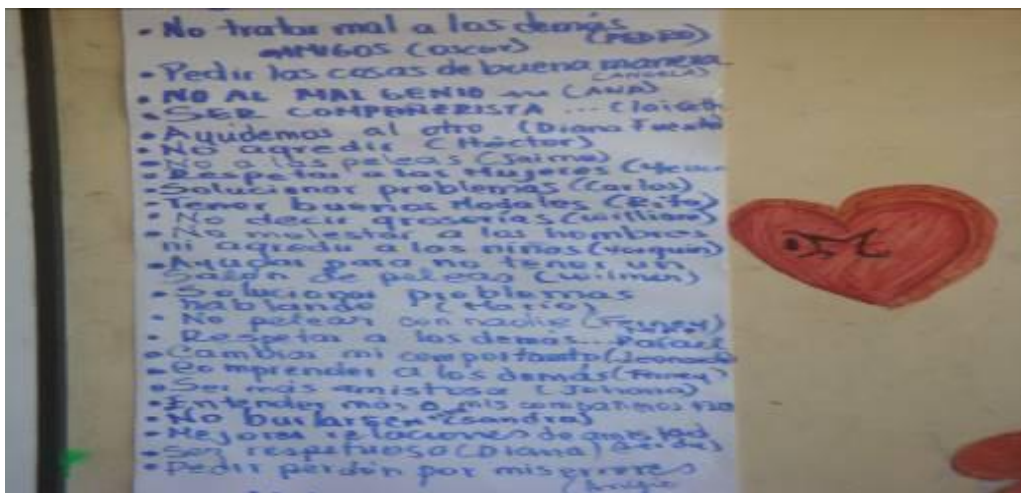 • No tratar mal a los demás
AMIGOS (oscar) (PEDRO)
• Pedir las cosas de buena manera
(ANGELA)
• NO AL MAL GENIO (ANA)
• SER COMPAÑERISTA ...
• Ayudemos al otro (Diana Fuente
• No agredir (Héctor)
• No a las peleas (Jaime)
• Respetar a las Mujeres
• Solucionar problemas (Carlos)
• Tener buenos Modales (Rito)
• No decir groserías (william)
• No molestar a los hombres
ni agredir a las niñas
• Ayudar para no tener un
Salón de peleas (wilmer)
• Solucionar problemas
hablando (Mario)
• No pelear con nadie
• Respetar a los demas... Rafael
• Cambiar mi comportamto
• Comprender a los demás
• Ser más amistosa (Johana)
• Entender más a mis
• No burlarsen (sandra)
• Mejorar relaciones de amistad
• Ser respetuoso (Diana)
• Pedir perdón por mis errores